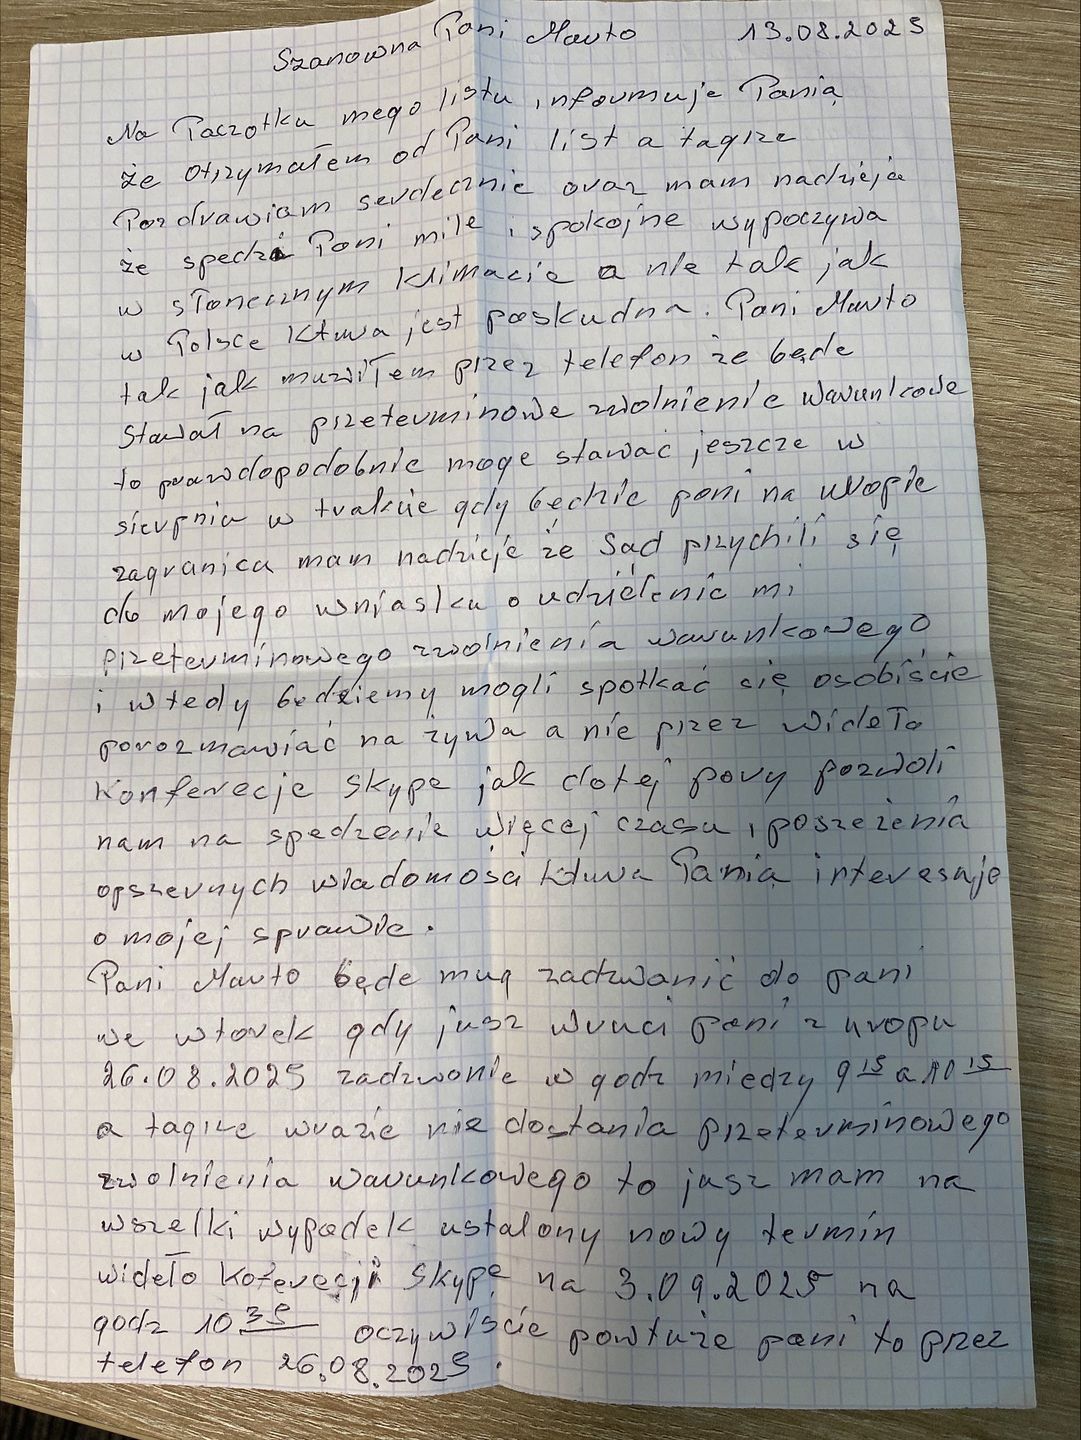 Szanowna Pani Marto 13.08.2025
Na Paczotku mego listu informuje Panią
że otrzymałem od Pani list a tagrze
Pozdrawiam serdecznie oraz mam nadzieja
że spedzi Pani mile i spokojne wypoczywa
w słonecznym klimacie a nie tak jak
w Polsce Ktura jest paskudna. Pani Marto
tak jak muwiłem przez telefon że będe
Stawał na przeterminowe zwolnienie warunkowe
to prawdopodobnie moge stawać jeszcze w
sierpniu w trakcie gdy będzie pani na uropie
zagranica mam nadzieje że Sąd przychili się
do mojego wnjasku o udzielenie mi
przeterminowego zwolnienia warunkowego
i wtedy będziemy mogli spotkać się osobiście
porozmawiać na żywa a nie przez wideło
Konferecje Skype jak dotej pory pozwoli
nam na spedzenie więcej czasu i poszeżenia
opszernych wiadomości ktura Panią interesuje
o mojej sprawie.
Pani Marto będe mug zadzwanić do pani
we wtorek gdy jusz wruci pani z uropu
26.08.2025 zadzwonie w godz miedzy 9 15 a 10 15
a tagrze wrazie nie dostania przeterminowego
zwolnienia warunkowego to jusz mam na
wszelki wypadek ustalony nowy termin
wideło koferecji Skype na 3.09.2025 na
godz 10 35 oczywiście powtuże pani to przez
telefon 26.08.2025.